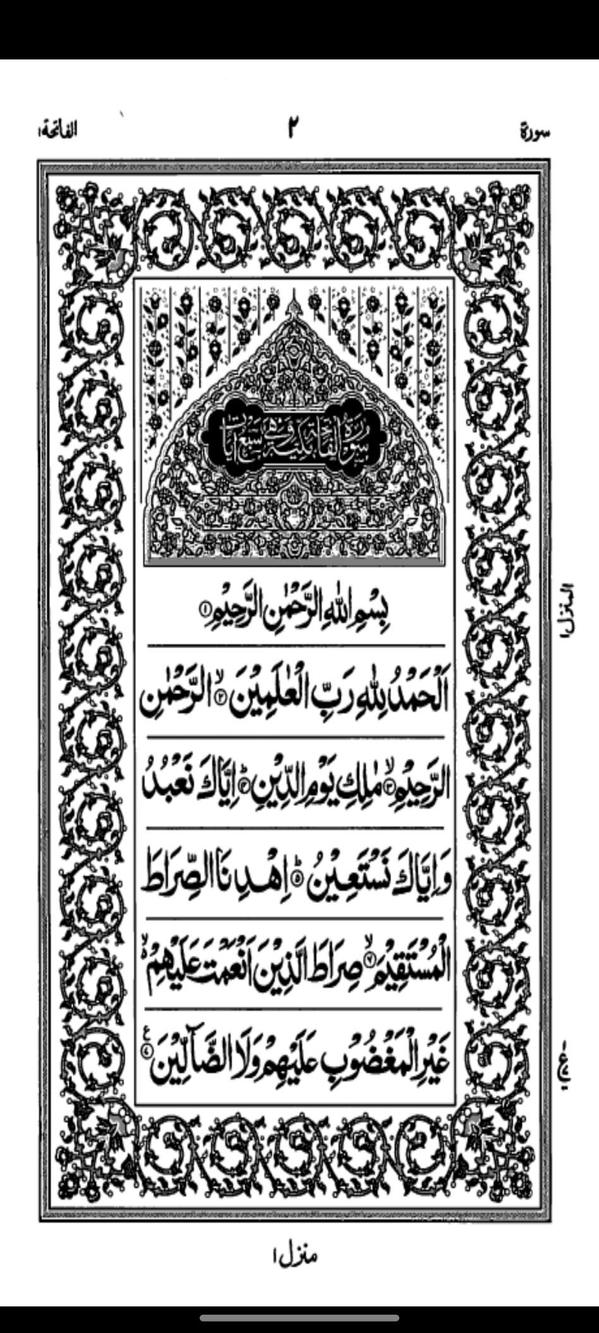 سورة ٢ الفاتحة ١
سورة الفاتحة مكية وهي سبع آيات
بِسْمِ اللّٰهِ الرَّحْمٰنِ الرَّحِيْمِ ۝١
اَلْحَمْدُ لِلّٰهِ رَبِّ الْعٰلَمِيْنَ ۙ۝٢ الرَّحْمٰنِ
الرَّحِيْمِ ۙ۝٣ مٰلِكِ يَوْمِ الدِّيْنِ ؕ۝٤ اِيَّاكَ نَعْبُدُ
وَاِيَّاكَ نَسْتَعِيْنُ ؕ۝٥ اِهْدِنَا الصِّرَاطَ
الْمُسْتَقِيْمَ ۙ۝٦ صِرَاطَ الَّذِيْنَ اَنْعَمْتَ عَلَيْهِمْ ۙ
غَيْرِ الْمَغْضُوْبِ عَلَيْهِمْ وَلَا الضَّآلِّيْنَ ۝٧ ع
المنزل ١
منزل ١